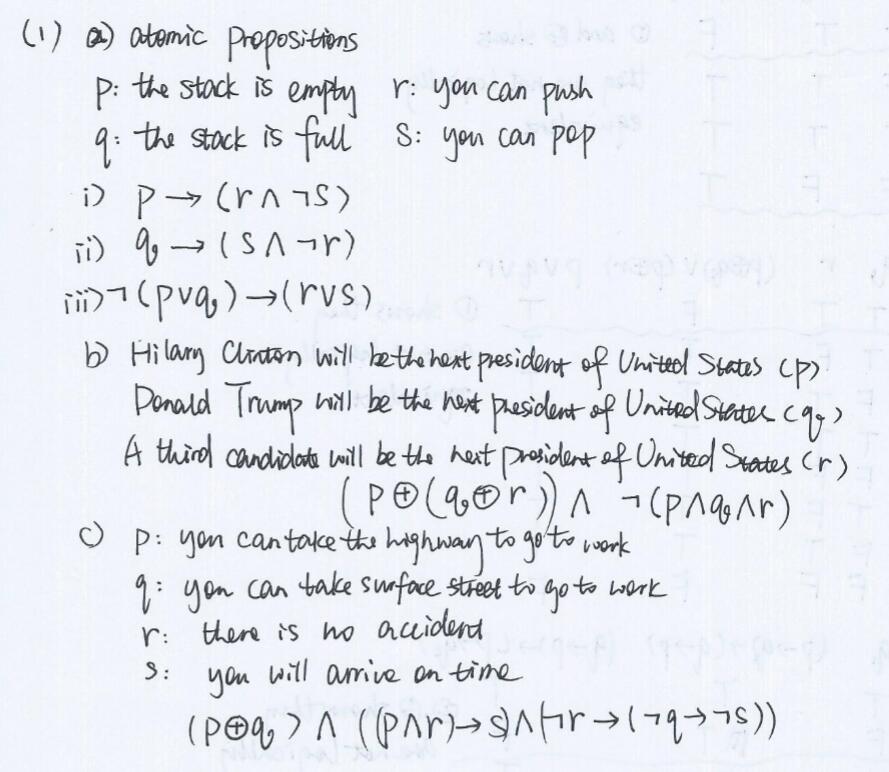 (1) a) atomic propositions
p: the stack is empty r: you can push
q: the stack is full s: you can pop
i) p → (r ∧ ¬s)
ii) q → (s ∧ ¬r)
iii) ¬(p∨q) → (r∨s)
b) Hilary Clinton will be the next president of United States (p)
Donald Trump will be the next president of United States (q)
A third candidate will be the next president of United States (r)
(p⊕(q⊕r)) ∧ ¬(p∧q∧r)
c) p: you can take the highway to go to work
q: you can take surface street to go to work
r: there is no accident
s: you will arrive on time
(p⊕q) ∧ ((p∧r)→s)∧(¬r→(¬q→¬s))